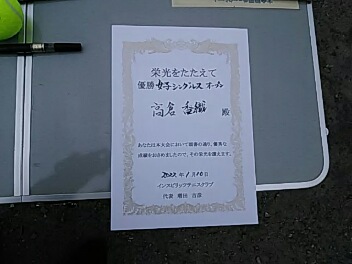 栄光をたたえて
優勝 女子シングルス オープン
高倉 香織 殿
あなたは本大会において頭書の通り、優秀な
成績をおさめましたので、その栄光を讃えます。
2022年1月10日
インスピリッツテニスクラブ
代表 増田 吉彦